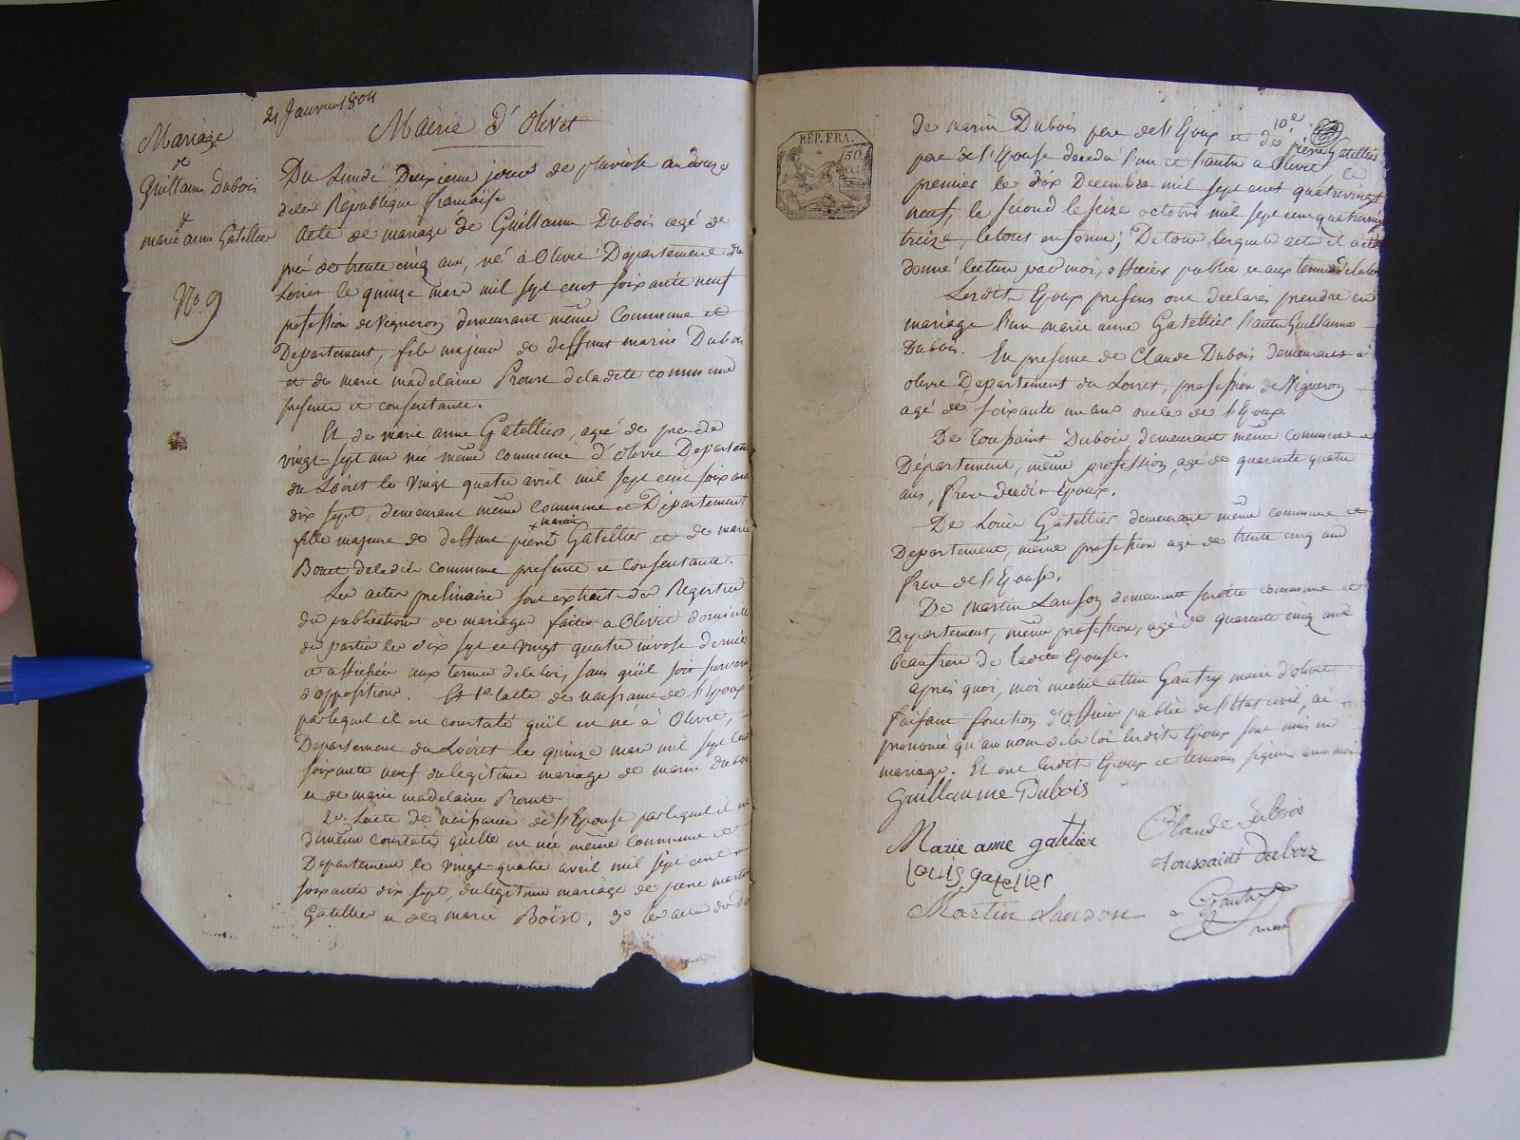 21 Janvier 1804
Mairie d'Olivet
Mariage
de
Guillaume Dubois
&
marie anne Gatellier
No. 9
Du Lundi Deuxieme jour de pluviose an douze
de la République française
Acte de mariage de Guillaume Dubois agé de
pré de trente cinq ans, né à Olivet Département du
Loiret le quinze mars mil sept cent soixante neuf
profession de Vigneron demeurant même Commune et
Département, fils majeur de deffunt marin Dubois
et de marie madelaine Proust de ladite commune
presente et consentante.
Et de marie anne Gatellier, agée de pres de
vingt sept ans née même commune d'Olivet Departement
du Loiret le vingt quatre avril mil sept cent soixante
dix sept, demeurant même commune et Département
fille majeure de deffunt pierre martin Gatellier et de marie
de ladite commune presente et consentante.
Les actes preliminaire sont extrait des Registres
de publications de mariage faites a Olivet domicile
des parties les dix sept et vingt quatre nivose dernier
et affichées aux termes de la loi, sans qu'il soit survenu
d'opposition. Et 1o l'acte de naissance de l'Epoux
par lequel il est constaté qu'il est né à Olivet,
Departement du Loiret le quinze mars mil sept cent
soixante neuf du legitime mariage de marin Dubois
et de marie madelaine Proust
2o L'acte de naissance de l'Epouse par lequel il est
de même constaté qu'elle est née même commune et
Departement le vingt quatre avril mil sept cent
soixante dix sept, du legitime mariage de pierre martin
Gatellier et de marie 3o les actes de
RÉP. FRA.
50
10e
de marin Dubois pere de l'Epoux et de pierre Gatellier
pere de l'Epouse decedé l'un et l'autre a Olivet le
premier le dix Decembre mil sept cent quatrevingt
neuf, le second le seize octobre mil sept cent quatrevingt
treize, le tout en forme; De tous lesquels actes il a été
donné lecture par moi, officier public et aux termes de la loi
Lesdits Epoux presens ont declarés prendre en
mariage l'un marie anne Gatellier l'autre Guillaume
Dubois. En presence de Claude Dubois demeurant a
olivet Departement du Loiret, profession de Vigneron
agé de soixante un ans oncle de l'Epoux
De Toussaint Dubois demeurant même commune et
Département, même profession, agé de quarante quatre
ans, frere dudit Epoux.
De Louis Gatellier demeurant même commune et
Departement, même profession agé de trente cinq ans
frere de l'Epouse.
De Martin Lanson demeurant susdite commune et
Departement, même profession, agé de quarante cinq ans
beaufrere de ladite Epouse.
après quoi, moi Gautry maire d'olivet
faisant fonction d'Officier public de l'Etat civil, ai
prononcé qu'au nom de la loi lesdits Epoux sont unis en
mariage. Et ont lesdits Epoux et temoins signé avec moi
Guillaume Dubois
Marie anne gatelier
Claude Dubois
Toussaint dubois
Louis gatelier
Martin Lanson
Gautry
maire